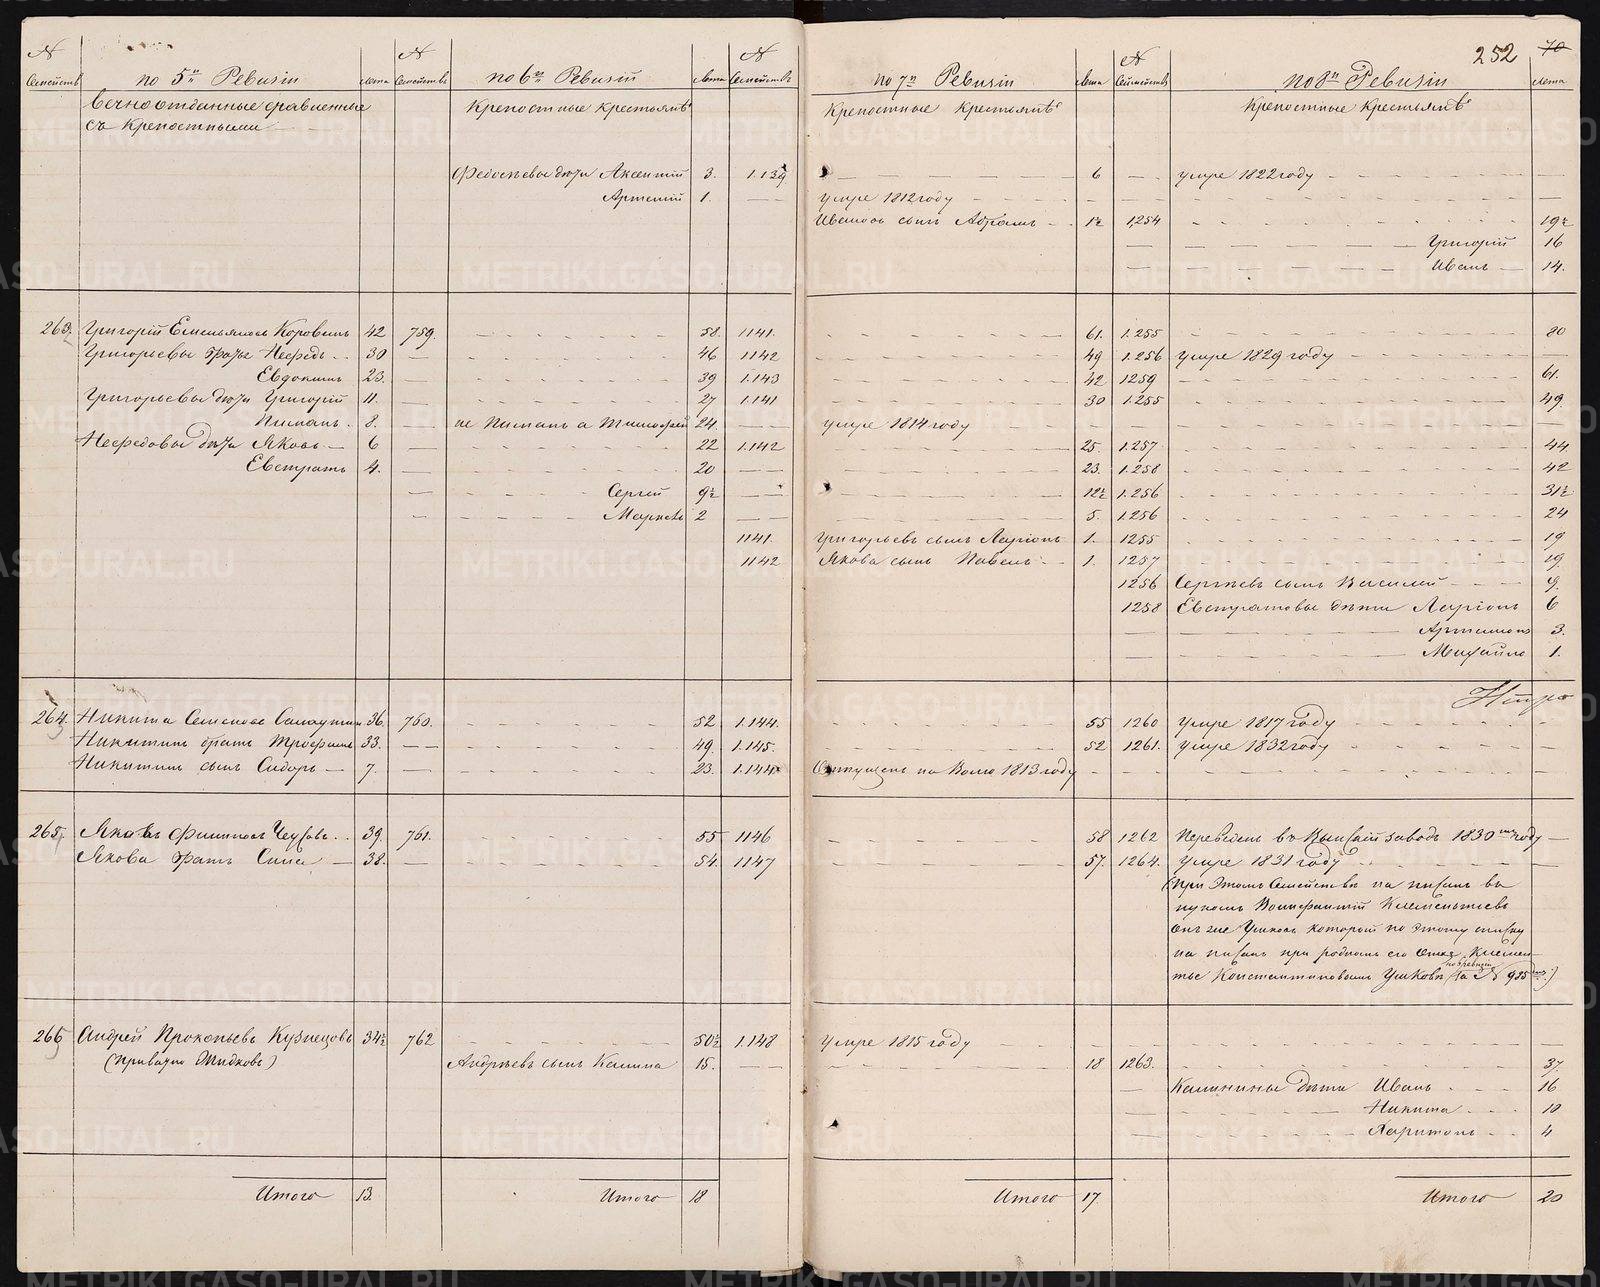 252 70
N Семействъ по 5й Ревизіи лета N Семействъ по 6й Ревизіи лета N Семействъ по 7й Ревизіи лета N Семействъ по 8й Ревизіи лета
вечно отданные сравненные Крепостные крестьянѣ Крепостные Крестьянѣ Крепостные Крестьянѣ
съ Крепостными
дѣти Аксентій 3. 1.139. 6 умре 1822 году
Артемій 1. умре 1812 году
Ивановъ сынъ Абрамъ 1½ 1254 19½
Григорій 16
Иванъ 14.
263. Григорій Емельяновъ Коровинъ 42 759. 58. 1141. 61. 1.255 80
Григорьевы братье Нефедъ 30 46 1142 49 1.256 умре 1829 году
Евдокимъ 23. 39 1.143 42 1259 61.
Григорьевы дѣти Григорій 11. 27 1.141 30 1.255 49.
Пиманъ 8. не Пиманъ а Тимофей 24. умре 1814 году
Нефедовы дѣти Яковъ 6 22 1.142 25. 1.257 44
Евстратъ 4. 20 23. 1.258 42
Сергей 9½ 12½ 1.256 31½
Маркелъ 2 5. 1.256 24
1141. Григорьевъ сынъ Ларіонъ 1. 1255 19
1142 Якова сынъ Павелъ 1. 1257 19.
1256 Сергѣевъ сынъ Василей 9.
1258 Евстратовы дѣти Ларіонъ 6
Артамонъ 3.
Михайло 1.
264. Никита Семеновъ 36. 760. 52. 1.144. 55 1260 умре 1817 году
Никитинъ братъ Трофимъ 33. 49. 1.145. 52 1261. умре 1832 году
Никитинъ сынъ Сидоръ 7. 23. 1.144. Отпущенъ на Волю 1813 году
265. Яковъ Филиповъ 39. 761. 55 1146 58 1262 Переведенъ въ заводъ 1830 году
Якова братъ Сила 38. 54. 1147 57. 1264. умре 1831 году
(При Этомъ Семействѣ на писанъ въ
Вонифантій Клементьевъ
онъ же Ушковъ которой по этому списку
на писанъ при родномъ его отцѣ Клемен-
тье Константиновомъ Ушковѣ за N 935)
266 Андрей Прокопьевъ Кузнецовъ 34½ 762 50½ 1.148 умре 1815 году
(Привадно Жидковъ) Андреевъ сынъ Калина 15. 18 1263. 37.
Калинины дѣти Иванъ 16
Никита 10
Харитонъ 4
Итого 13. Итого 18 Итого 17 Итого 20
METRIKI.GASO-URAL.RU